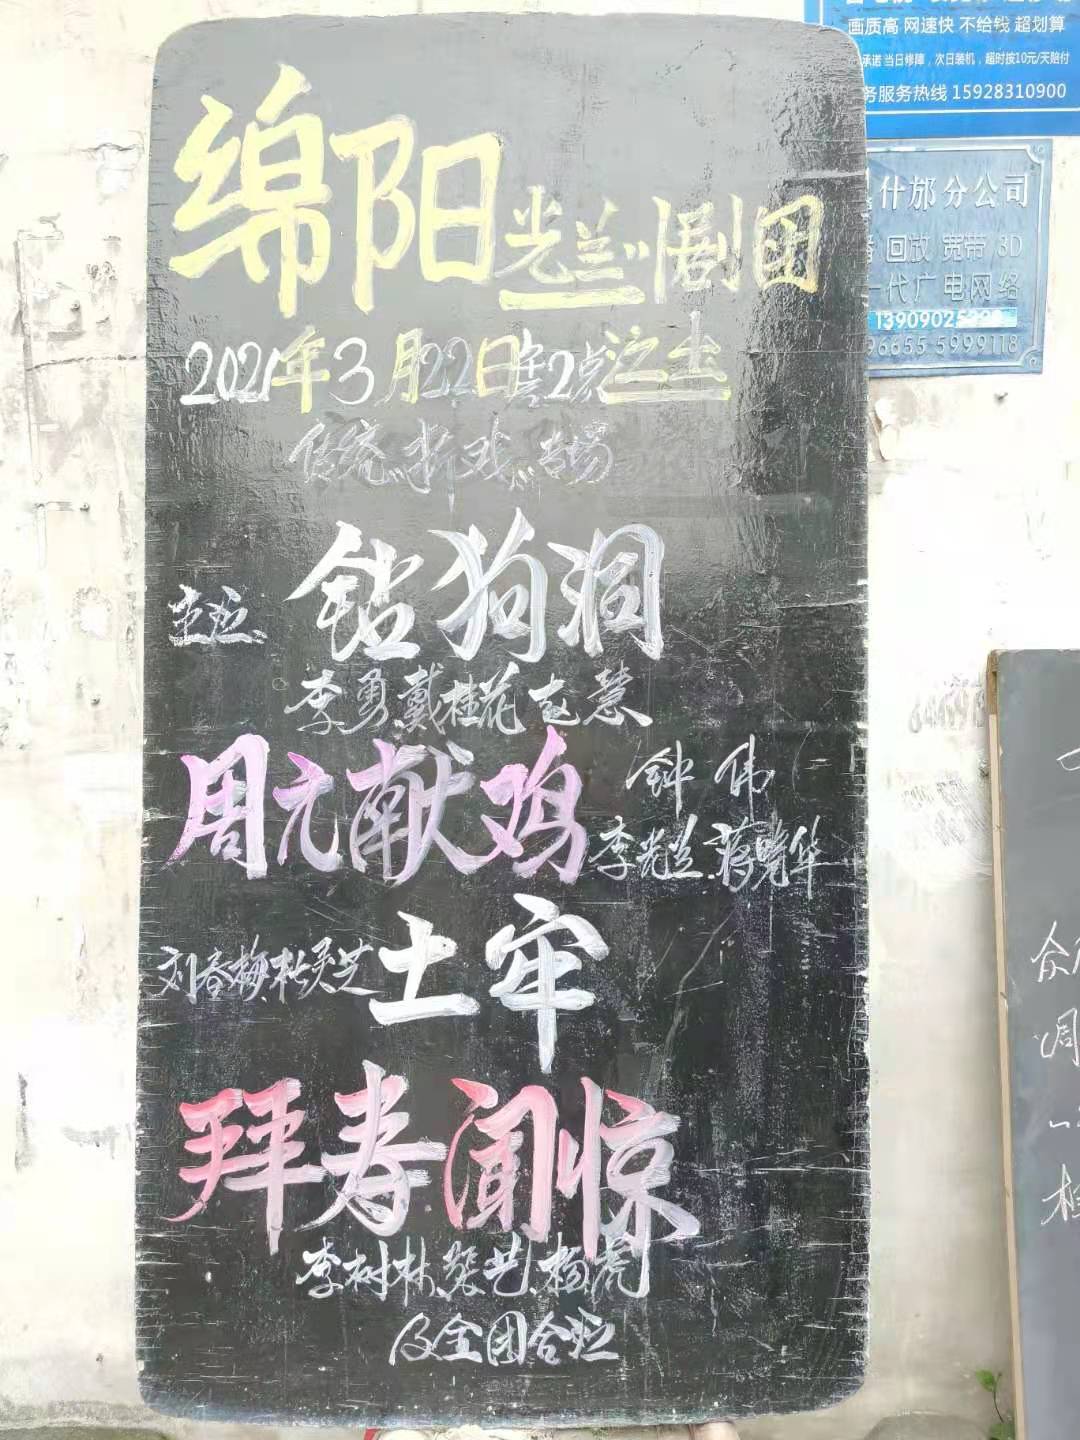 画质高 网速快 不给钱 超划算
承诺 当日修障，次日装机，超时按10元/天赔付
务服务热线 15928310900
什邡分公司
回放 宽带 3D
一代广电网络
13909025
96655 5999118
绵阳光兰川剧团
2021年3月22日 2点
传统折戏专场
主演
钻狗洞
李勇 戴桂花 慧
周元献鸡
钟伟
李光兰 蒋晓华
刘春梅 杜灵芝 土牢
拜寿闻惊
李树林 张艺 杨虎
及全团合演